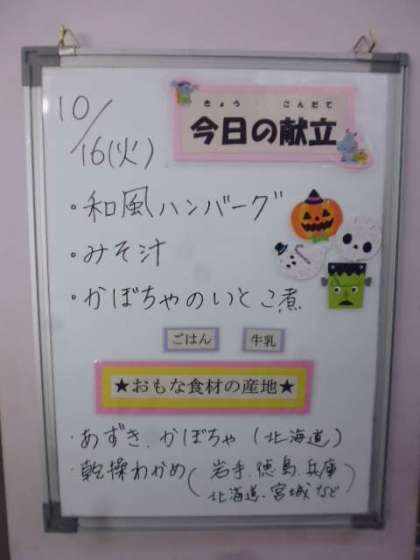 10/16(火)
きょう こんだて
今日の献立
・和風ハンバーグ
・みそ汁
・かぼちゃのいとこ煮
ごはん 牛乳
★おもな食材の産地★
・あずき、かぼちゃ (北海道)
・乾燥わかめ (岩手、徳島、兵庫
北海道、宮城など)